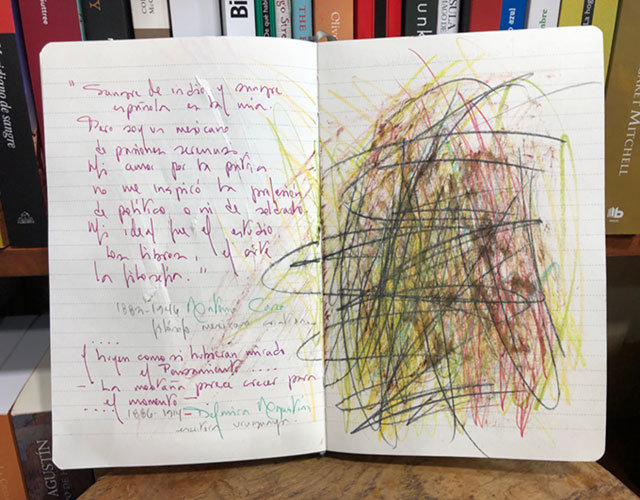 "Sangre de indio y sangre
española es la mía.
Pero soy un mexicano
de pasiones serenas.
Mi amor por la patria
no me inspiró la profesión
de político o ni de soldado
Mi ideal fue el estudio
los libros, el arte
la filosofía."
1883-1946 Antonio Caso
filósofo mexicano
.....
y huyen como si hubieran mirado
el Pensamiento .....
- La montaña parece crecer para
.... el momento -
1886-1914 - Delmira Agustini
escritora uruguaya
Meridiano de sangre
Bi
unk
SULA
azul
MITCHELL
AGUSTÍN